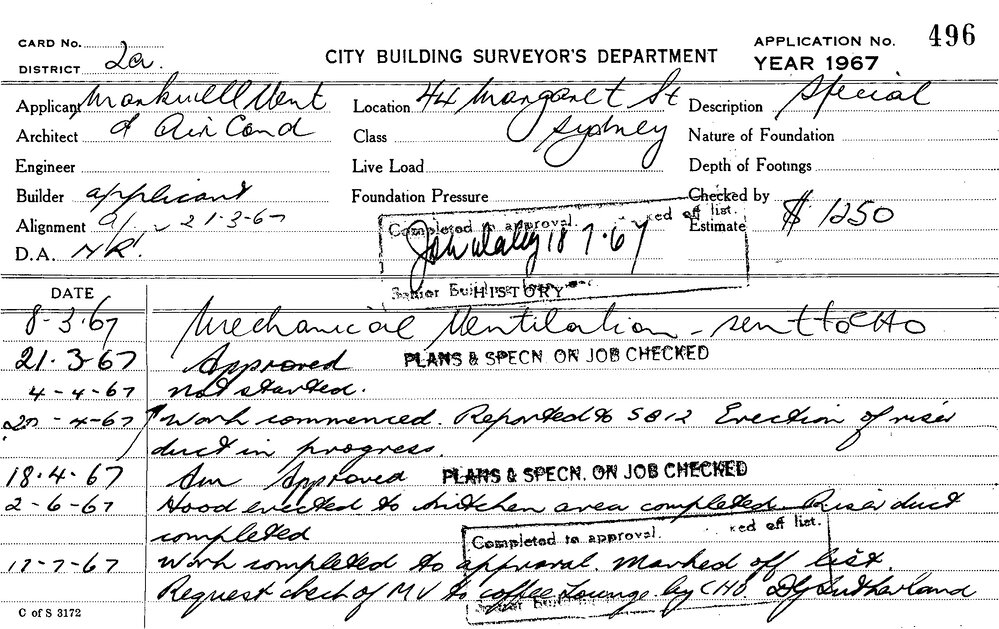 CARD No.
DISTRICT 2a.
CITY BUILDING SURVEYOR'S DEPARTMENT
APPLICATION No. 496
YEAR 1967
Applicant Markwell Vent Location 44 Margaret St Description Special
Architect & Air Cond Class Sydney Nature of Foundation
Engineer Live Load Depth of Footings
Builder applicant Foundation Pressure Checked by
Alignment 21-3-67 Completed to approval. ked off list. Estimate $ 1250
D.A. NR. 18 7.67
HISTORY
DATE
8-3.67 Mechanical Ventilation - sent to CHO
21.3.67 Approved PLANS & SPECN. ON JOB CHECKED
4-4-67 not started.
-4-67 Work commenced. Reported to SB12 Erection of riser
duct in progress.
18.4.67 Am Approved PLANS & SPECN. ON JOB CHECKED
2-6-67 Hood erected to kitchen area completed Riser duct
completed Completed to approval. ked off list.
17-7-67 Work completed to approval. Marked off list.
Request check of MV to coffee lounge by CHO. Sutherland
C of S 3172